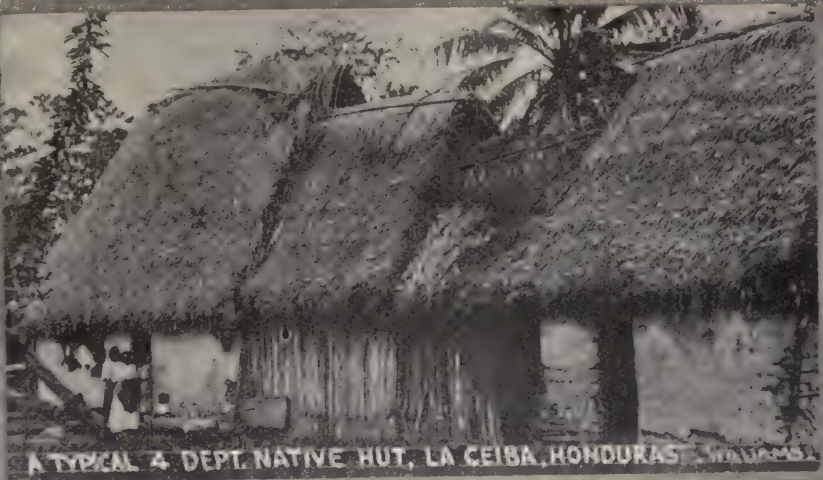 A TYPICAL 4 DEPT. NATIVE HUT, LA CEIBA, HONDURAS - WILLIAMS